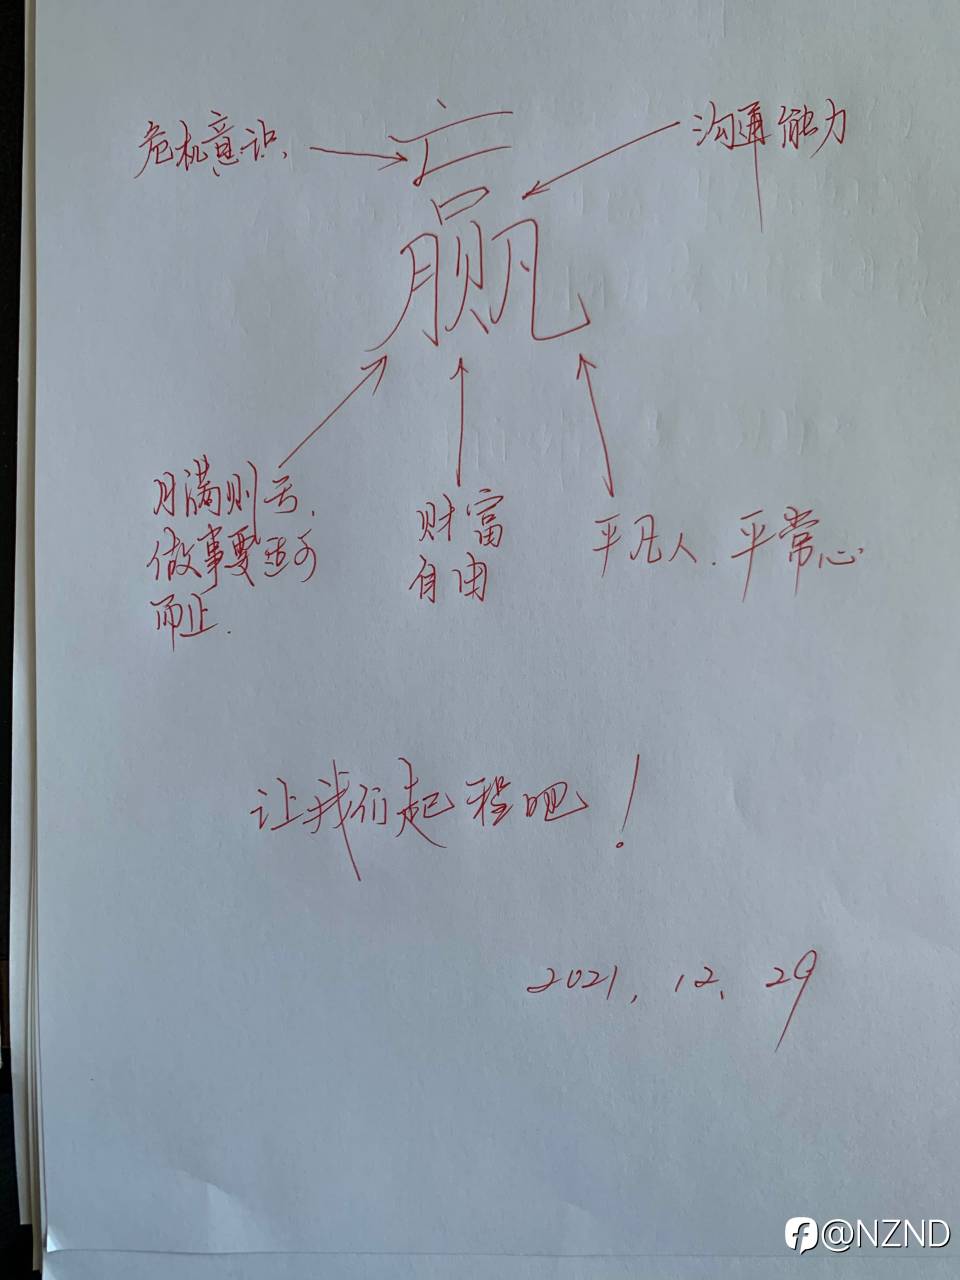 危机意识.
沟通能力
赢
月满则亏.
做事要适可
而止.
财富
自由
平凡人.平常心
让我们起程吧!
2021.12.29
@NZND